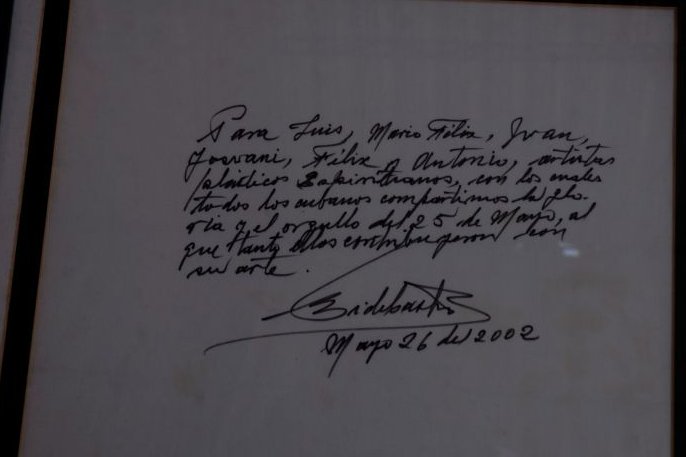 Para Luis, Mario Félix, Ivan,
Jorvani, Félix y Antonio, artistas
plásticos Espirituanos, con los cuales
todos los cubanos compartimos la glo-
ria y el orgullo del 25 de Mayo, al
que tanto ellos contribuyeron con
su arte.
Mayo 26 de 2002